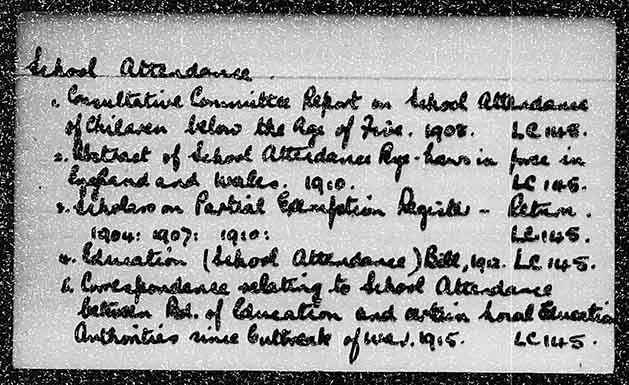 School Attendance.
1. Consultative Committee Report on School Attendance
of Children below the Age of Five. 1908. LC 145.
2. Abstract of School Attendance Bye-Laws in force in
England and Wales. 1910. LC 145.
3. Scholars on Partial Exemption Register - Return.
1904: 1907: 1910: LC 145.
4. Education (School Attendance) Bill, 1912. LC 145.
5. Correspondence relating to School Attendance
between Bd. of Education and certain Local Education
Authorities since Outbreak of War. 1915. LC 145.